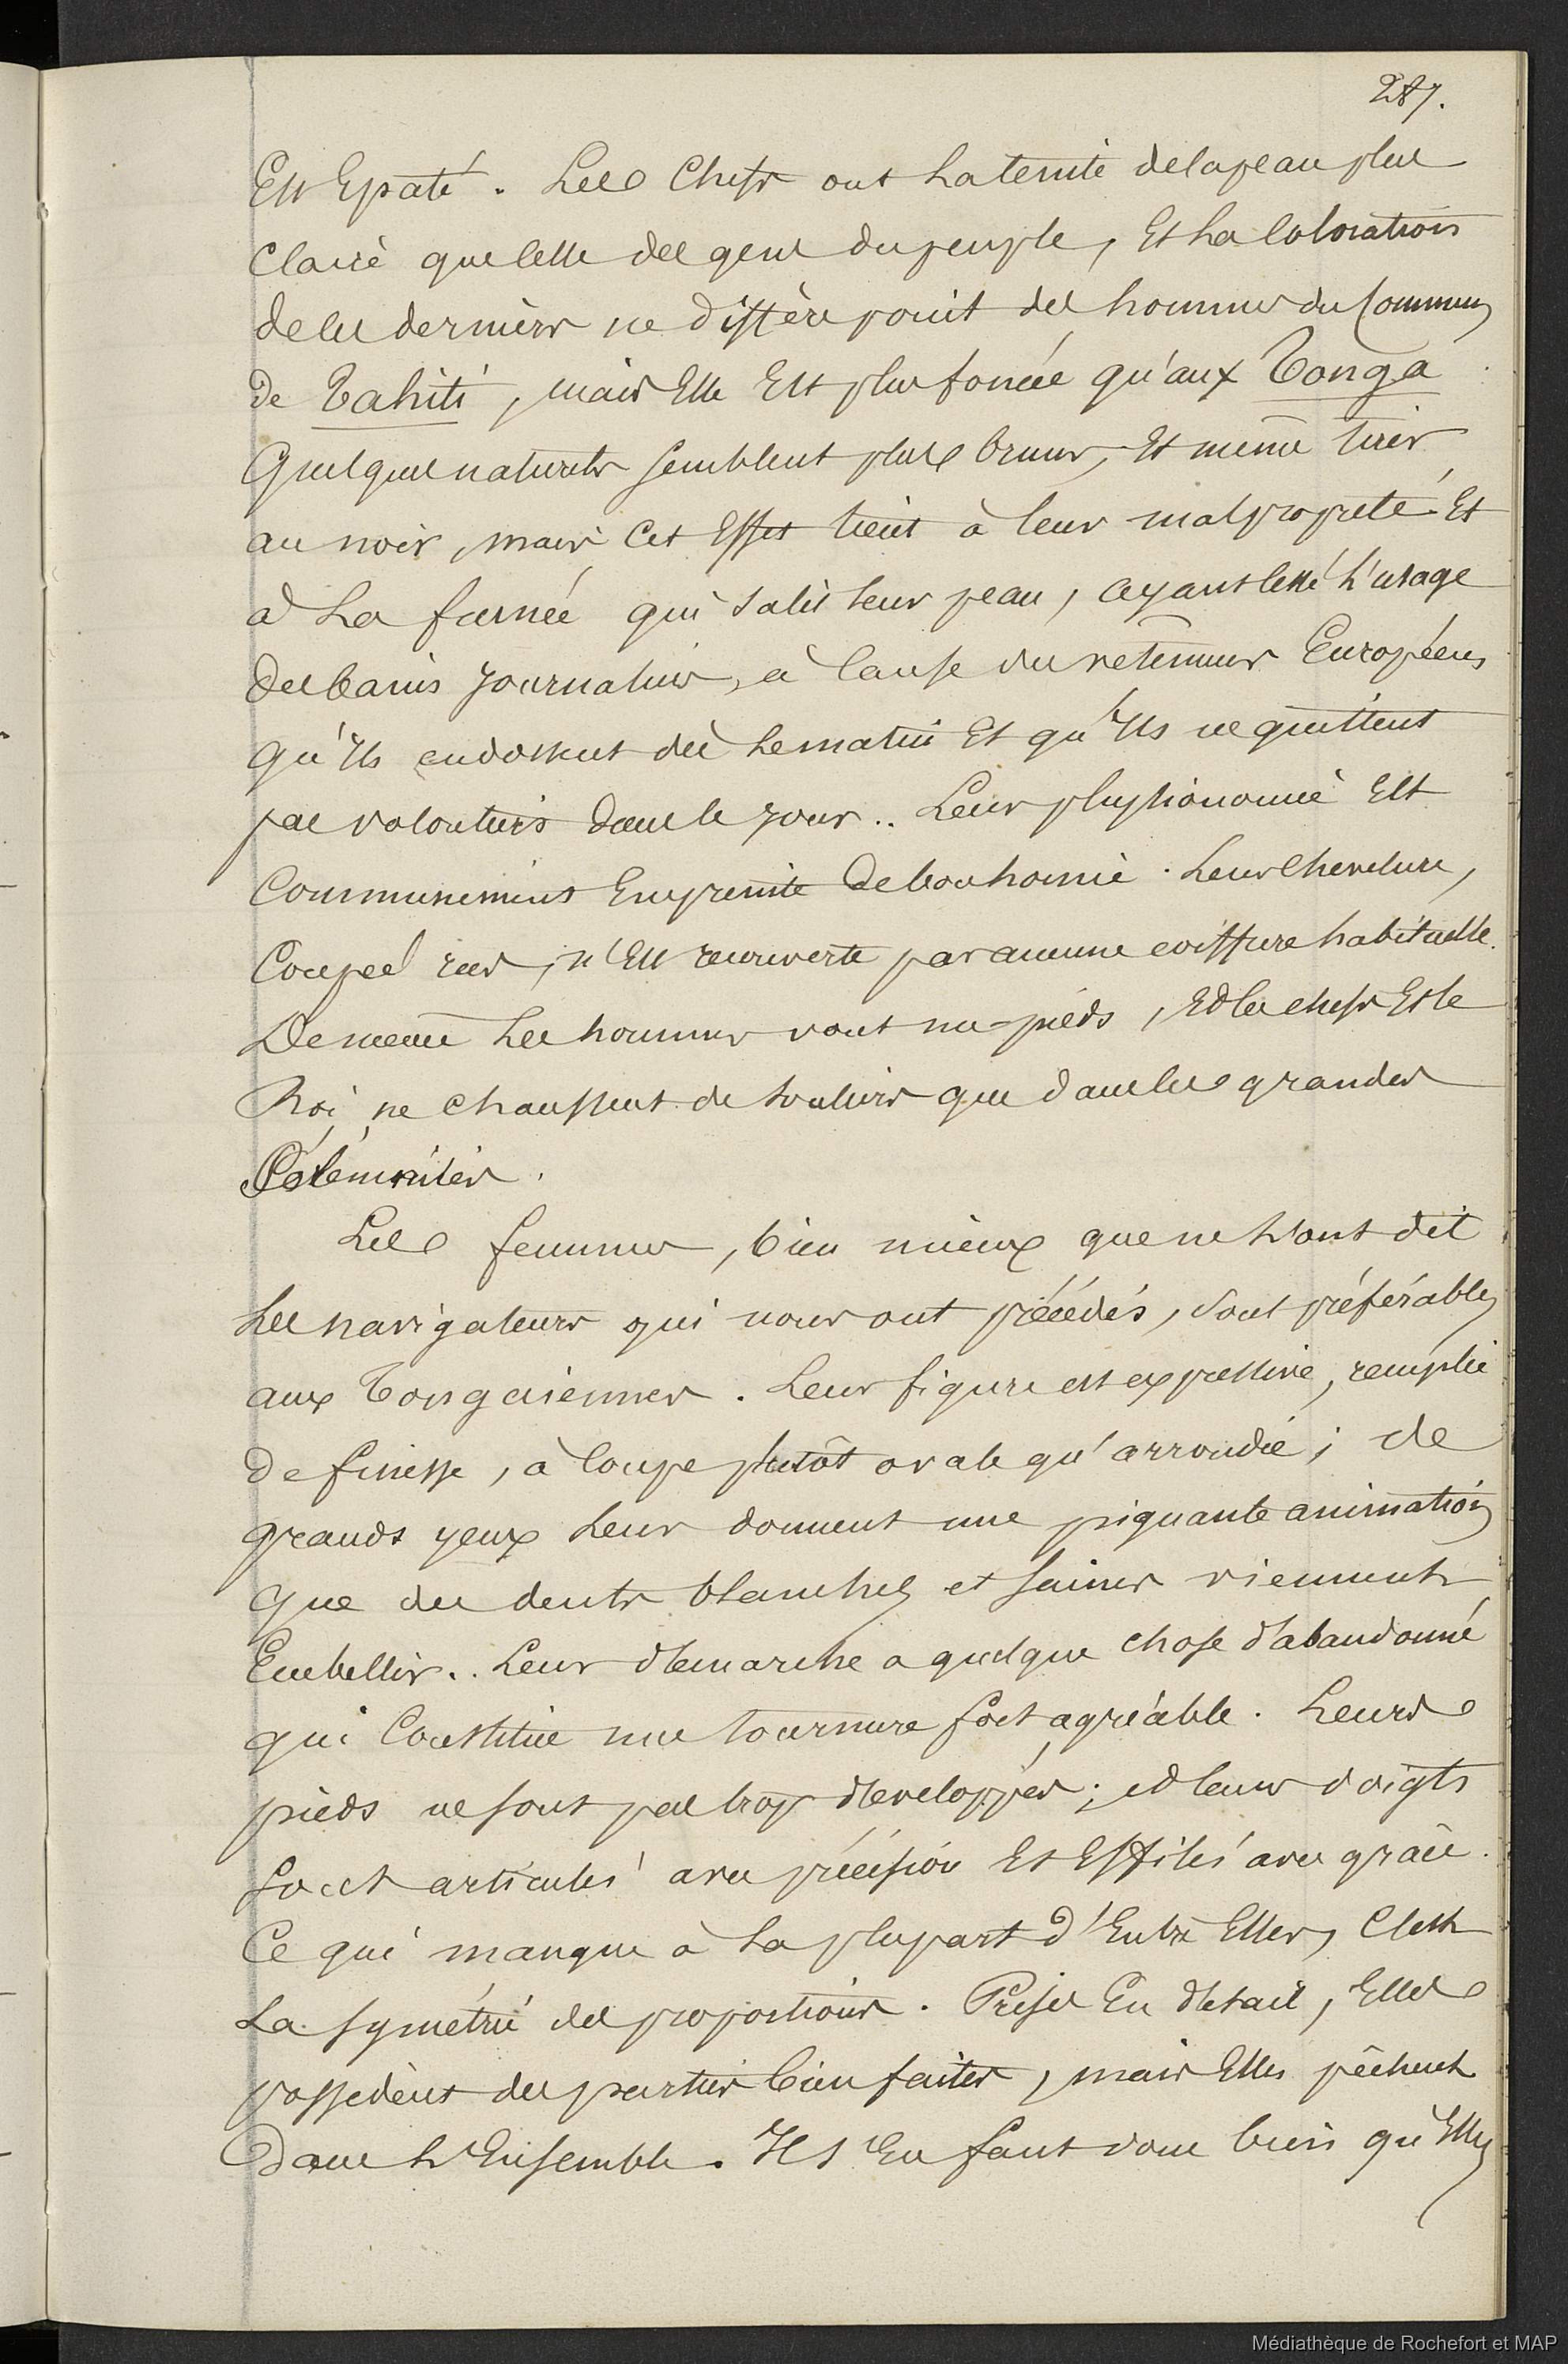 287.
Est Epaté. Les Chefs ont la teinte de la peau plus
Claire que celle des gens du peuple, Et la Coloration
de ces derniers ne diffère point des hommes du Commun
de Tahiti, mais Elle Est plus foncée qu'aux Tonga.
Quelques naturels semblent plus bruns, Et même tirer
au noir, mais Cet Effet tient à leur malpropreté Et
à La fumée qui salit leur peau, ayant cessé L'usage
des bains journaliers, à Cause des vêtements Européens
qu'Ils endossent dès le matin Et qu'Ils ne quittent
pas volontiers dans le jour.. Leur physionomie Est
Communément Empreinte de bonhomie. Leur Chevelure,
Coupée ras, n'Est recouverte par aucune coiffure habituelle.
De même Les hommes vont nu-pieds, Et les chefs Et le
Roi, ne chaussent de souliers que dans les grandes
Solennités.
Les femmes, bien mieux que ne L'ont dit
Les navigateurs qui nous ont précédés, sont préférables
aux Tongaiennes. Leur figure est expressive, remplie
de finesse, à Coupe plutôt ovale qu'arrondie; de
grands yeux Leur donnent une piquante animation
que des dents blanches et saines viennent
Embellir.. Leur démarche a quelque chose d'abandonné
qui Constitue une tournure fort agréable. Leurs
pieds ne sont pas trop développés; et leurs doigts
sont articulés avec précision Et Effilés avec grâce.
Ce qui manque à La plupart d'Entre Elles, C'est
La symétrie des proportions. Prises En détail, Elles
possèdent des parties bien faites, mais Elles pêchent
Dans L'Ensemble. Il s'En faut donc bien qu'Elles
Médiathèque de Rochefort et MAP